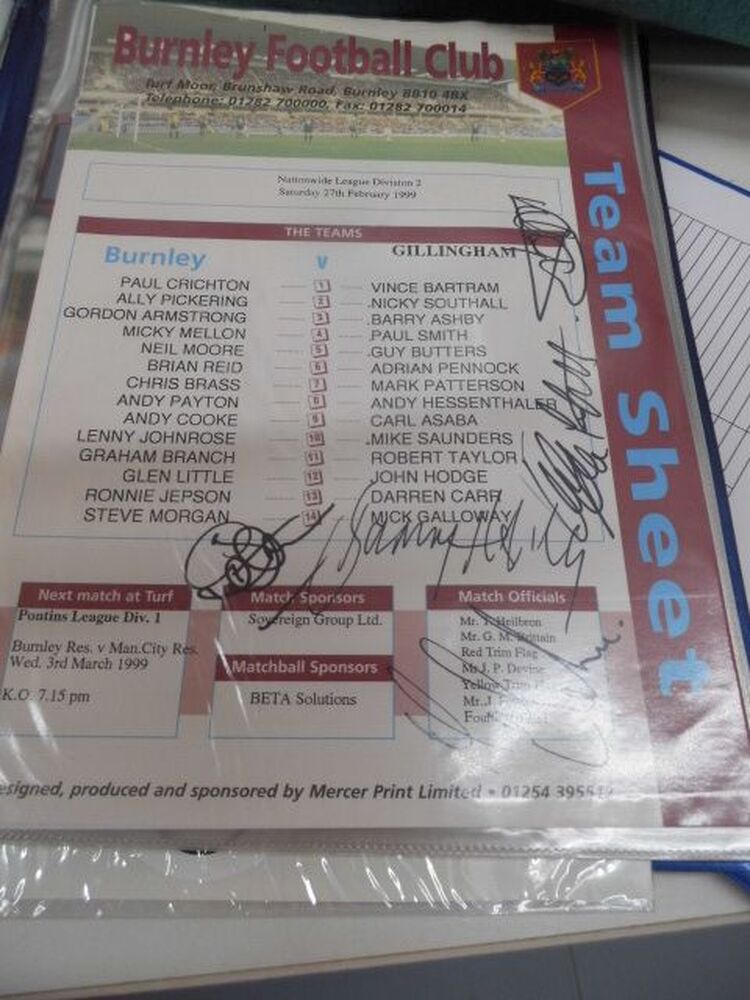 Burnley Football Club
Turf Moor, Brunshaw Road, Burnley BB10 4BX
Telephone: 01282 700000, Fax: 01282 700014
Team Sheet
Nationwide League Division 2
Saturday 27th February 1999
THE TEAMS
Burnley v GILLINGHAM
PAUL CRICHTON 1 VINCE BARTRAM
ALLY PICKERING 2 NICKY SOUTHALL
GORDON ARMSTRONG 3 BARRY ASHBY
MICKY MELLON 4 PAUL SMITH
NEIL MOORE 5 GUY BUTTERS
BRIAN REID 6 ADRIAN PENNOCK
CHRIS BRASS 7 MARK PATTERSON
ANDY PAYTON 8 ANDY HESSENTHALER
ANDY COOKE 9 CARL ASABA
LENNY JOHNROSE 10 MIKE SAUNDERS
GRAHAM BRANCH 11 ROBERT TAYLOR
GLEN LITTLE 12 JOHN HODGE
RONNIE JEPSON 13 DARREN CARR
STEVE MORGAN 14 MICK GALLOWAY
Next match at Turf
Pontins League Div. 1
Burnley Res. v Man.City Res.
Wed. 3rd March 1999
K.O. 7.15 pm
Match Sponsors
Sovereign Group Ltd.
Matchball Sponsors
BETA Solutions
Match Officials
Mr. T. Heilbron
Mr. G. M.
Red Trim Flag
Mr J. P. Devine
Yellow Trim
Mr. J.
esigned, produced and sponsored by Mercer Print Limited • 01254 3955